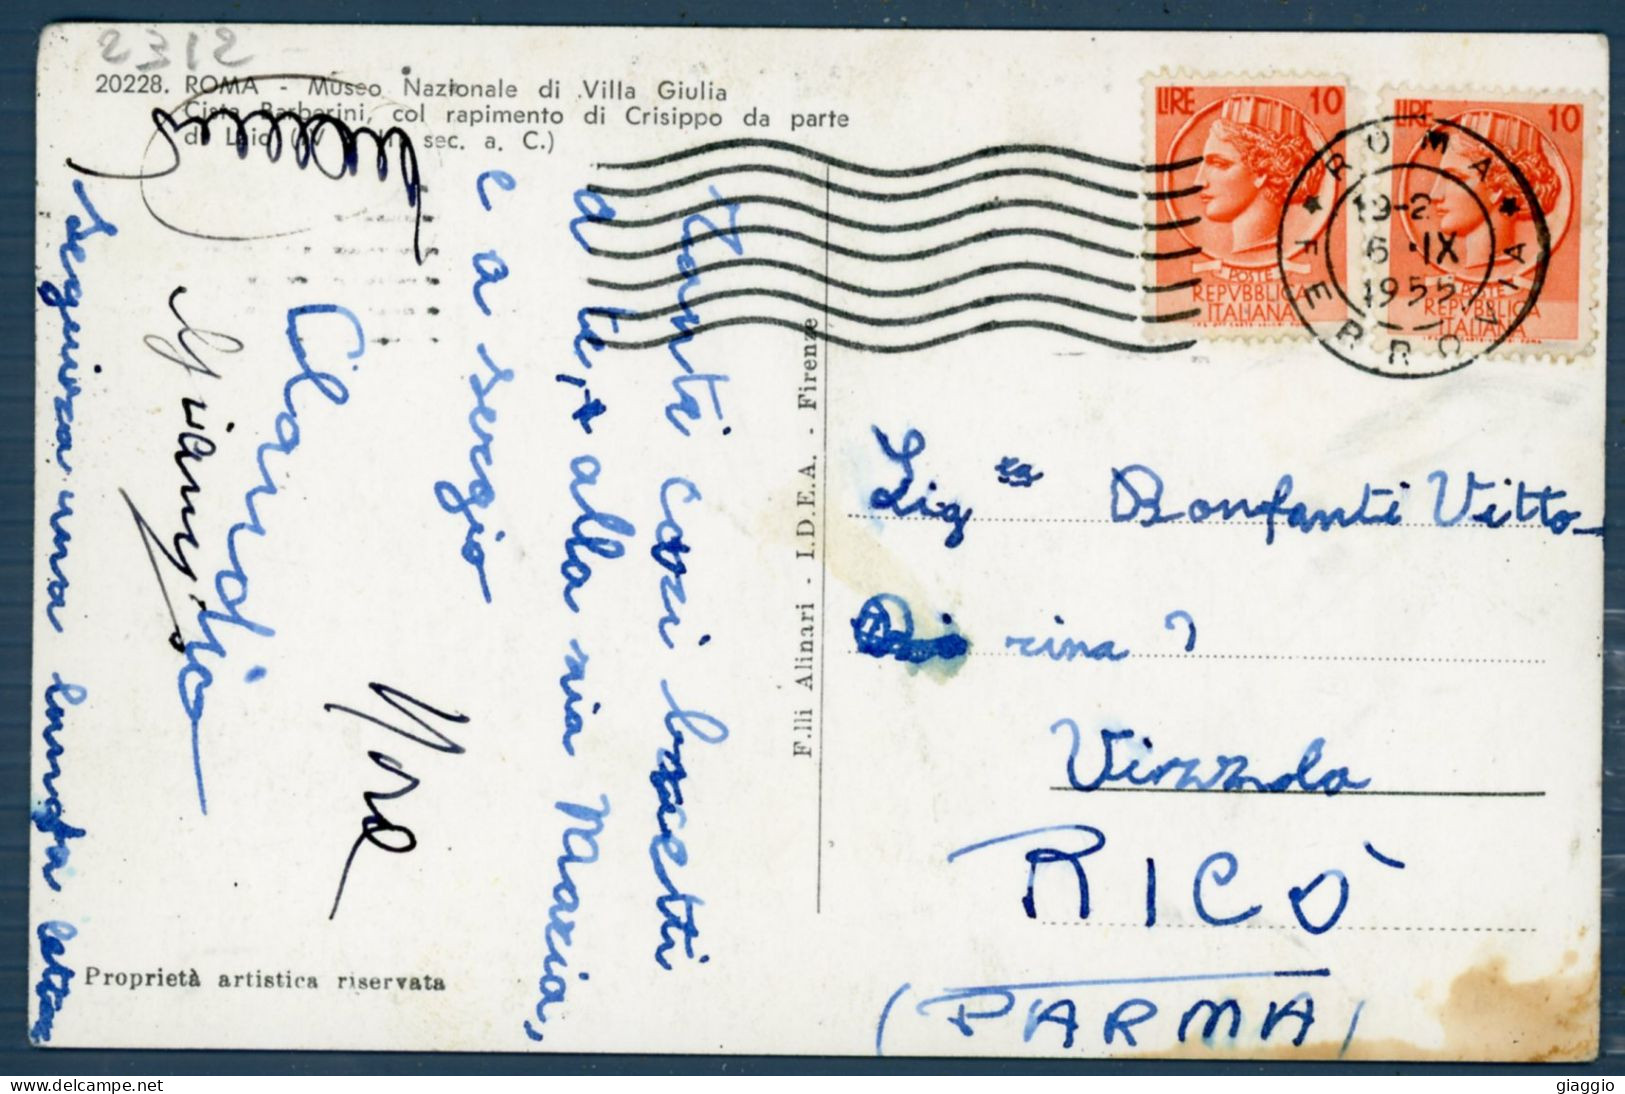 2312
20228. ROMA - Museo Nazionale di Villa Giulia
Cista Barberini, col rapimento di Crisippo da parte
di Laio (IV - III sec. a. C.)
tanti cari bacetti
a te, + alla mia Marzia,
e a Sergio
Claudio
Giangi
Seguirà una lunga lettera
Proprietà artistica riservata
F.lli Alinari - I.D.E.A. - Firenze
LIRE 10
POSTE
REPVBBLICA
ITALIANA
LIRE 10
POSTE
REPVBBLICA
ITALIANA
ROMA
FERROVIA
19-2
6 IX
1955
Sig ra Bonfanti Vitto-
rina
Vizzola
RICÒ
(PARMA)
giaggio